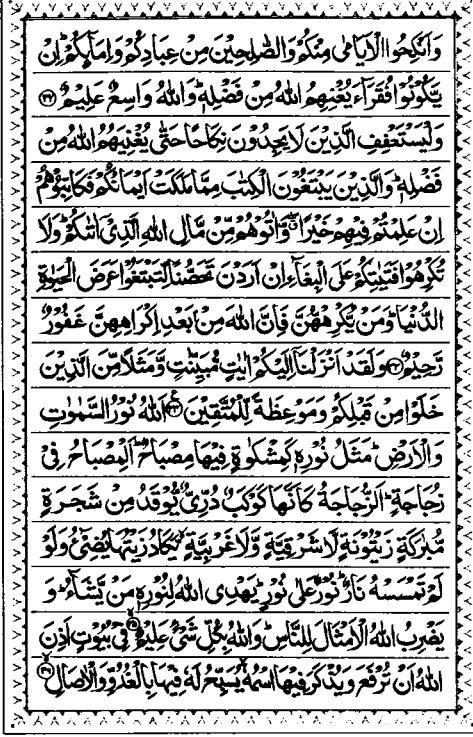 وَاَنْكِحُوا الْاَيَامٰى مِنْكُمْ وَالصّٰلِحِيْنَ مِنْ عِبَادِكُمْ وَاِمَآئِكُمْ ؕ اِنْ
يَّكُوْنُوْا فُقَرَآءَ يُغْنِهِمُ اللّٰهُ مِنْ فَضْلِهٖ ؕ وَاللّٰهُ وَاسِعٌ عَلِيْمٌ ۝۳۲
وَلْيَسْتَعْفِفِ الَّذِيْنَ لَا يَجِدُوْنَ نِكَاحًا حَتّٰى يُغْنِيَهُمُ اللّٰهُ مِنْ
فَضْلِهٖ ؕ وَالَّذِيْنَ يَبْتَغُوْنَ الْكِتٰبَ مِمَّا مَلَكَتْ اَيْمَانُكُمْ فَكَاتِبُوْهُمْ
اِنْ عَلِمْتُمْ فِيْهِمْ خَيْرًا ۖ وَّاٰتُوْهُمْ مِّنْ مَّالِ اللّٰهِ الَّذِىْۤ اٰتٰىكُمْ ؕ وَلَا
تُكْرِهُوْا فَتَيٰتِكُمْ عَلَى الْبِغَآءِ اِنْ اَرَدْنَ تَحَصُّنًا لِّتَبْتَغُوْا عَرَضَ الْحَيٰوةِ
الدُّنْيَا ؕ وَمَنْ يُّكْرِهْهُّنَّ فَاِنَّ اللّٰهَ مِنْۢ بَعْدِ اِكْرَاهِهِنَّ غَفُوْرٌ
رَّحِيْمٌ ۝۳۳ وَلَقَدْ اَنْزَلْنَاۤ اِلَيْكُمْ اٰيٰتٍ مُّبَيِّنٰتٍ وَّمَثَلًا مِّنَ الَّذِيْنَ
خَلَوْا مِنْ قَبْلِكُمْ وَمَوْعِظَةً لِّلْمُتَّقِيْنَ ۝۳۴ اَللّٰهُ نُوْرُ السَّمٰوٰتِ
وَالْاَرْضِ ؕ مَثَلُ نُوْرِهٖ كَمِشْكٰوةٍ فِيْهَا مِصْبَاحٌ ؕ اَلْمِصْبَاحُ فِىْ
زُجَاجَةٍ ؕ اَلزُّجَاجَةُ كَاَنَّهَا كَوْكَبٌ دُرِّىٌّ يُّوْقَدُ مِنْ شَجَرَةٍ
مُّبٰرَكَةٍ زَيْتُوْنَةٍ لَّا شَرْقِيَّةٍ وَّلَا غَرْبِيَّةٍ ۙ يَّكَادُ زَيْتُهَا يُضِىْٓءُ وَلَوْ
لَمْ تَمْسَسْهُ نَارٌ ؕ نُوْرٌ عَلٰى نُوْرٍ ؕ يَهْدِى اللّٰهُ لِنُوْرِهٖ مَنْ يَّشَآءُ ؕ وَ
يَضْرِبُ اللّٰهُ الْاَمْثَالَ لِلنَّاسِ ؕ وَاللّٰهُ بِكُلِّ شَىْءٍ عَلِيْمٌ ۝۳۵ فِىْ بُيُوْتٍ اَذِنَ
اللّٰهُ اَنْ تُرْفَعَ وَيُذْكَرَ فِيْهَا اسْمُهٗ ۙ يُسَبِّحُ لَهٗ فِيْهَا بِالْغُدُوِّ وَالْاٰصَالِ ۝۳۶